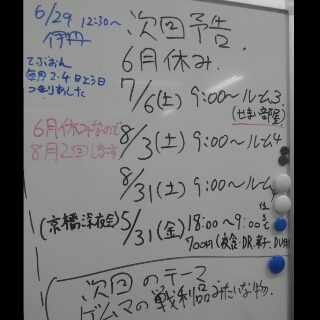 6/29 12:30〜
伊丹
てぶおん
毎月2.4日よう日
つきりました
6月休みなので
8月2回します
次回予告.
6月休み.
7/6(土) 9:00〜ルーム3
(せまい部屋)
8/3(土) 9:00〜ルーム4
8/31(土) 9:00〜ルーム
(京橋深夜会) 5/31(金) 18:00〜9:00まで
700円(夜食・DR.菓子、
次回のテーマ
ゲムマの戦利品みたいな物.